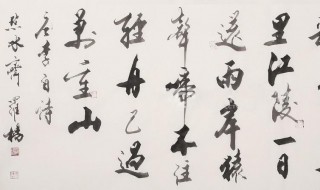 里江陵一日
還兩岸猿
聲啼不住
輕舟已過
萬重山
唐李白詩
水齋 羅楊